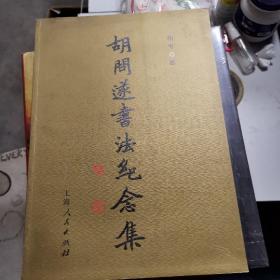 胡問遂書法紀念集
上海人民出版社